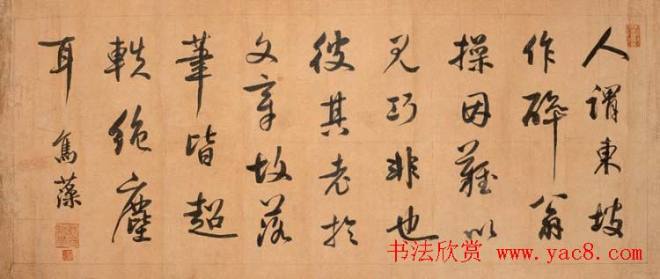 人謂東坡
作醉翁
操因難以
見巧非也
彼其老於
文章故落
筆皆超
軼絶塵
耳
寯藻
书法欣赏 www.yac8.com